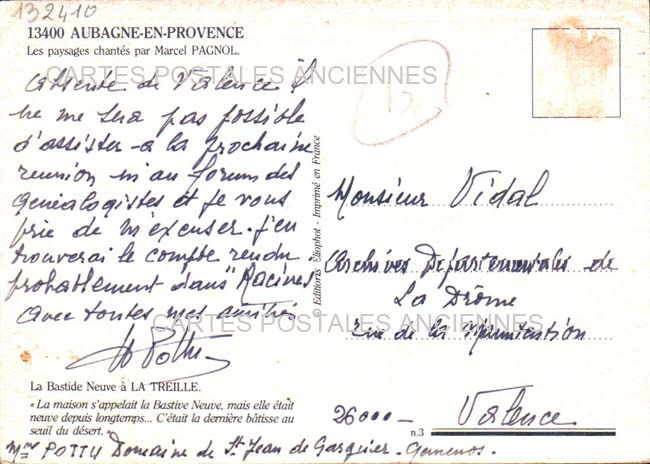 132410
13400 AUBAGNE-EN-PROVENCE
Les paysages chantés par Marcel PAGNOL.
CARTES POSTALES ANCIENNES
Absente de Valence il
ne me sera pas possible
d'assister à la prochaine
reunion ni au forum des
genealogistes et je vous
prie de m'excuser. j'en
trouverai le compte rendu
probablement dans "Racines"
avec toutes mes amitiés
CARTES POSTALES ANCIENNES
Potty
La Bastide Neuve à LA TREILLE.
« La maison s'appelait la Bastive Neuve, mais elle était
neuve depuis longtemps... C'était la dernière bâtisse au
seuil du désert. »
Mme POTTY Domaine de St Jean de Garguier - Gemenos.
© Editions Eliophot - Imprimé en France
13
Monsieur Vidal
Archives Departementales de
La Drôme
rue de la Manutention
26000 - Valence
n.3